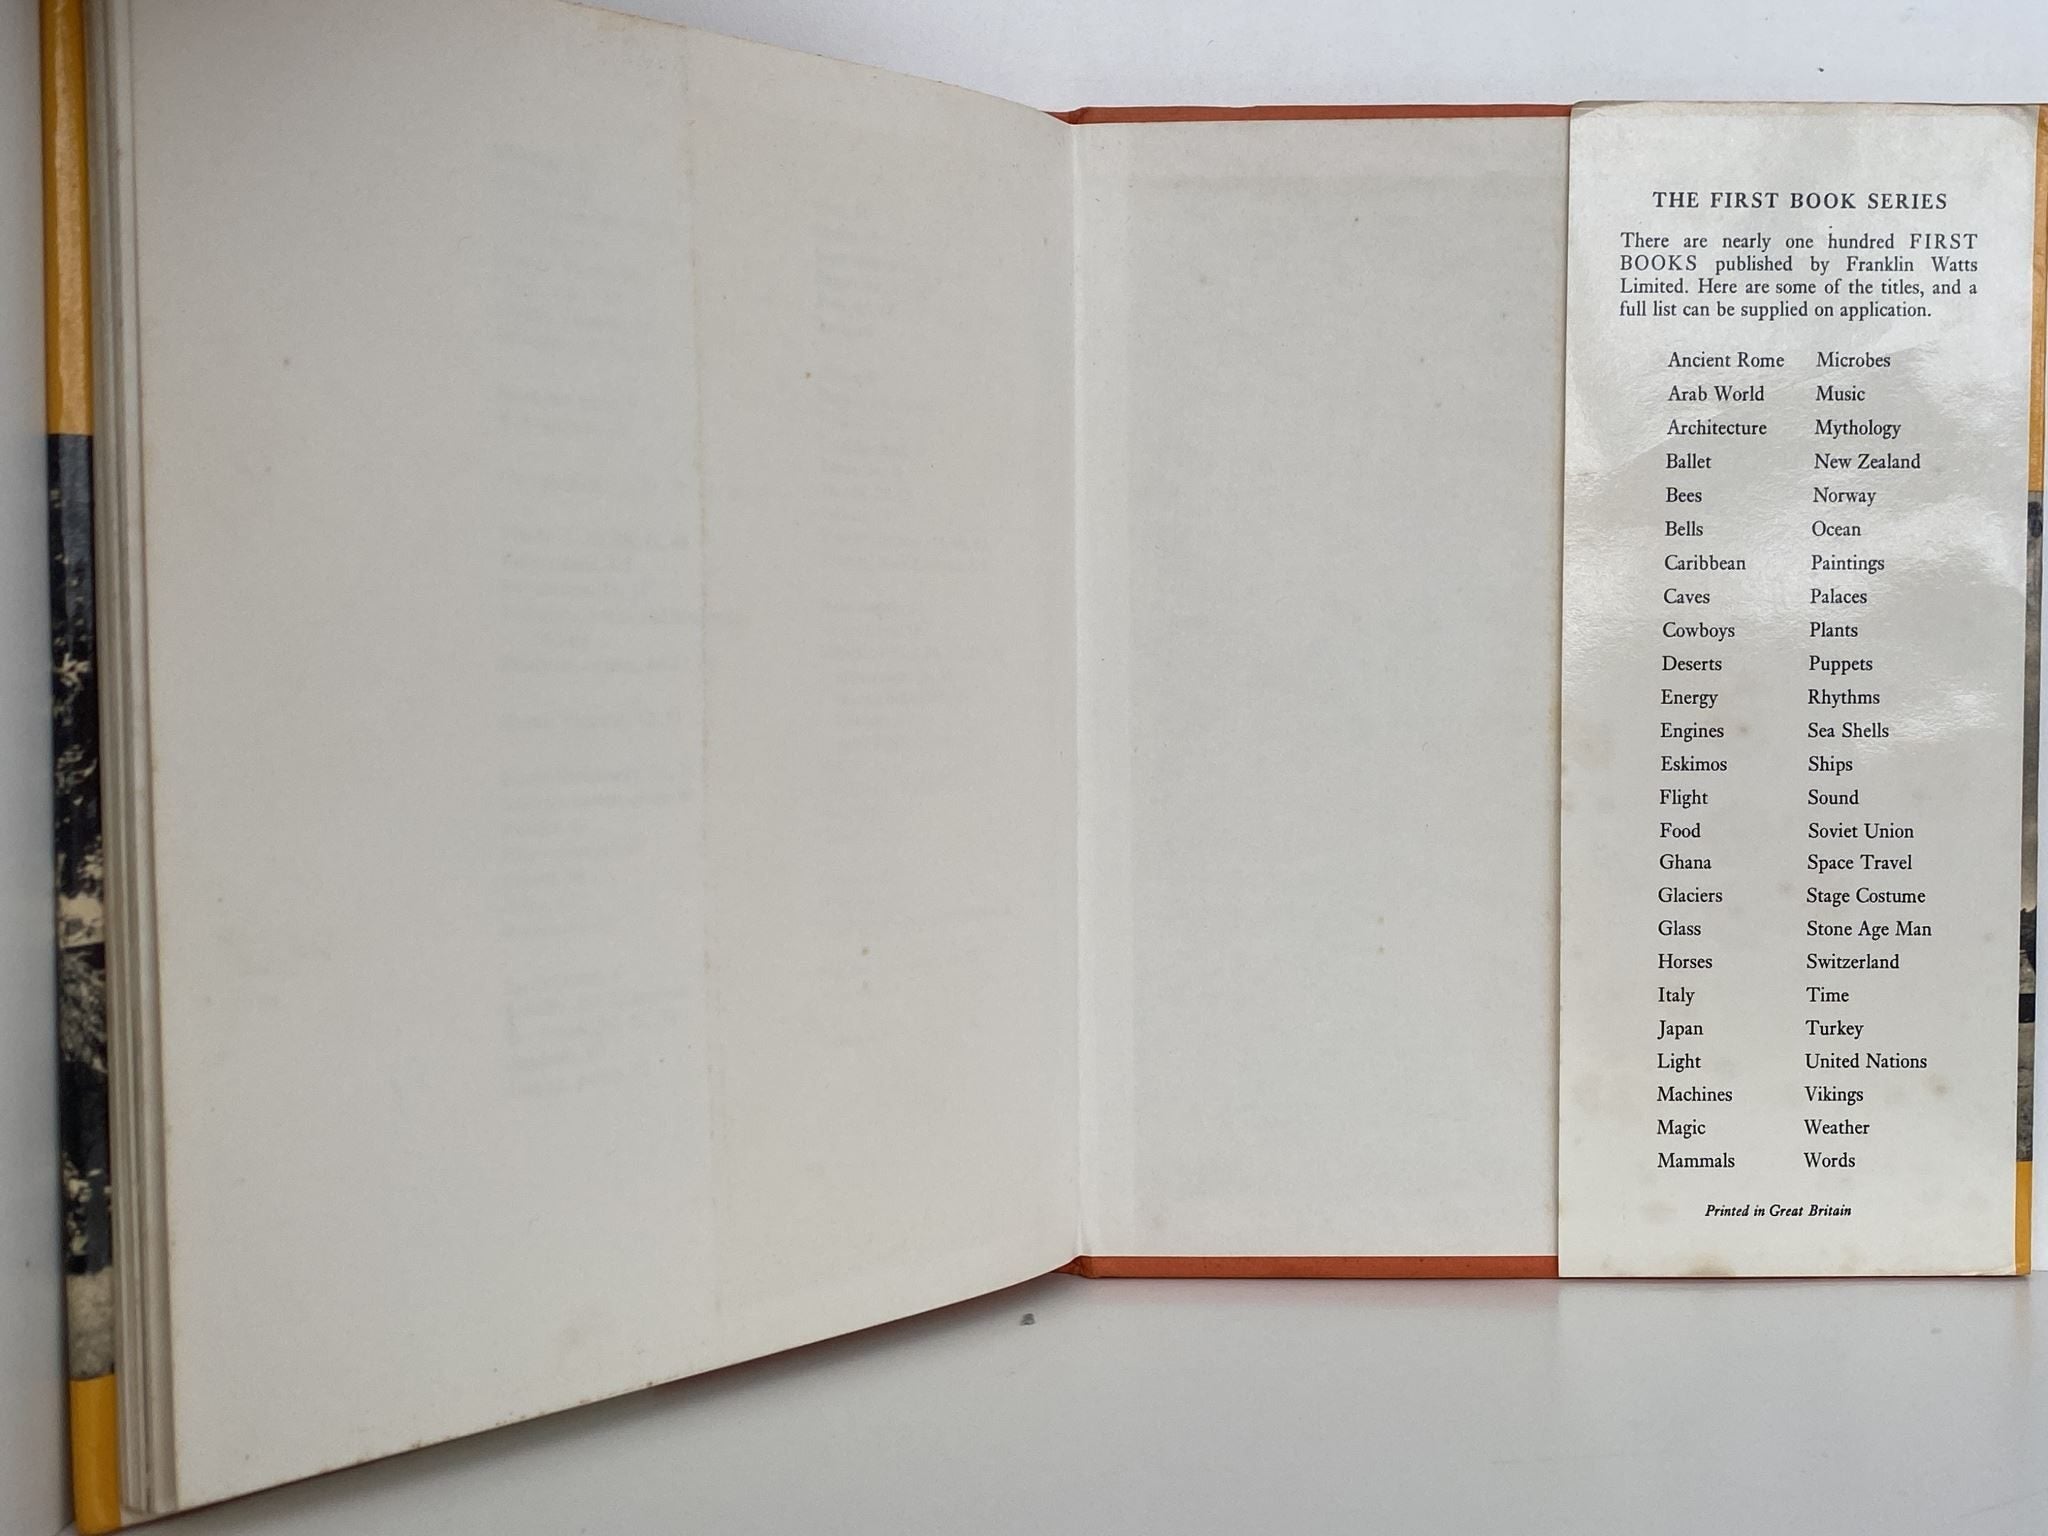 THE FIRST BOOK SERIES
There are nearly one hundred FIRST
BOOKS published by Franklin Watts
Limited. Here are some of the titles, and a
full list can be supplied on application.
Ancient Rome
Arab World
Architecture
Ballet
Bees
Bells
Caribbean
Caves
Cowboys
Deserts
Energy
Engines
Eskimos
Flight
Food
Ghana
Glaciers
Glass
Horses
Italy
Japan
Light
Machines
Magic
Mammals
Microbes
Music
Mythology
New Zealand
Norway
Ocean
Paintings
Palaces
Plants
Puppets
Rhythms
Sea Shells
Ships
Sound
Soviet Union
Space Travel
Stage Costume
Stone Age Man
Switzerland
Time
Turkey
United Nations
Vikings
Weather
Words
Printed in Great Britain